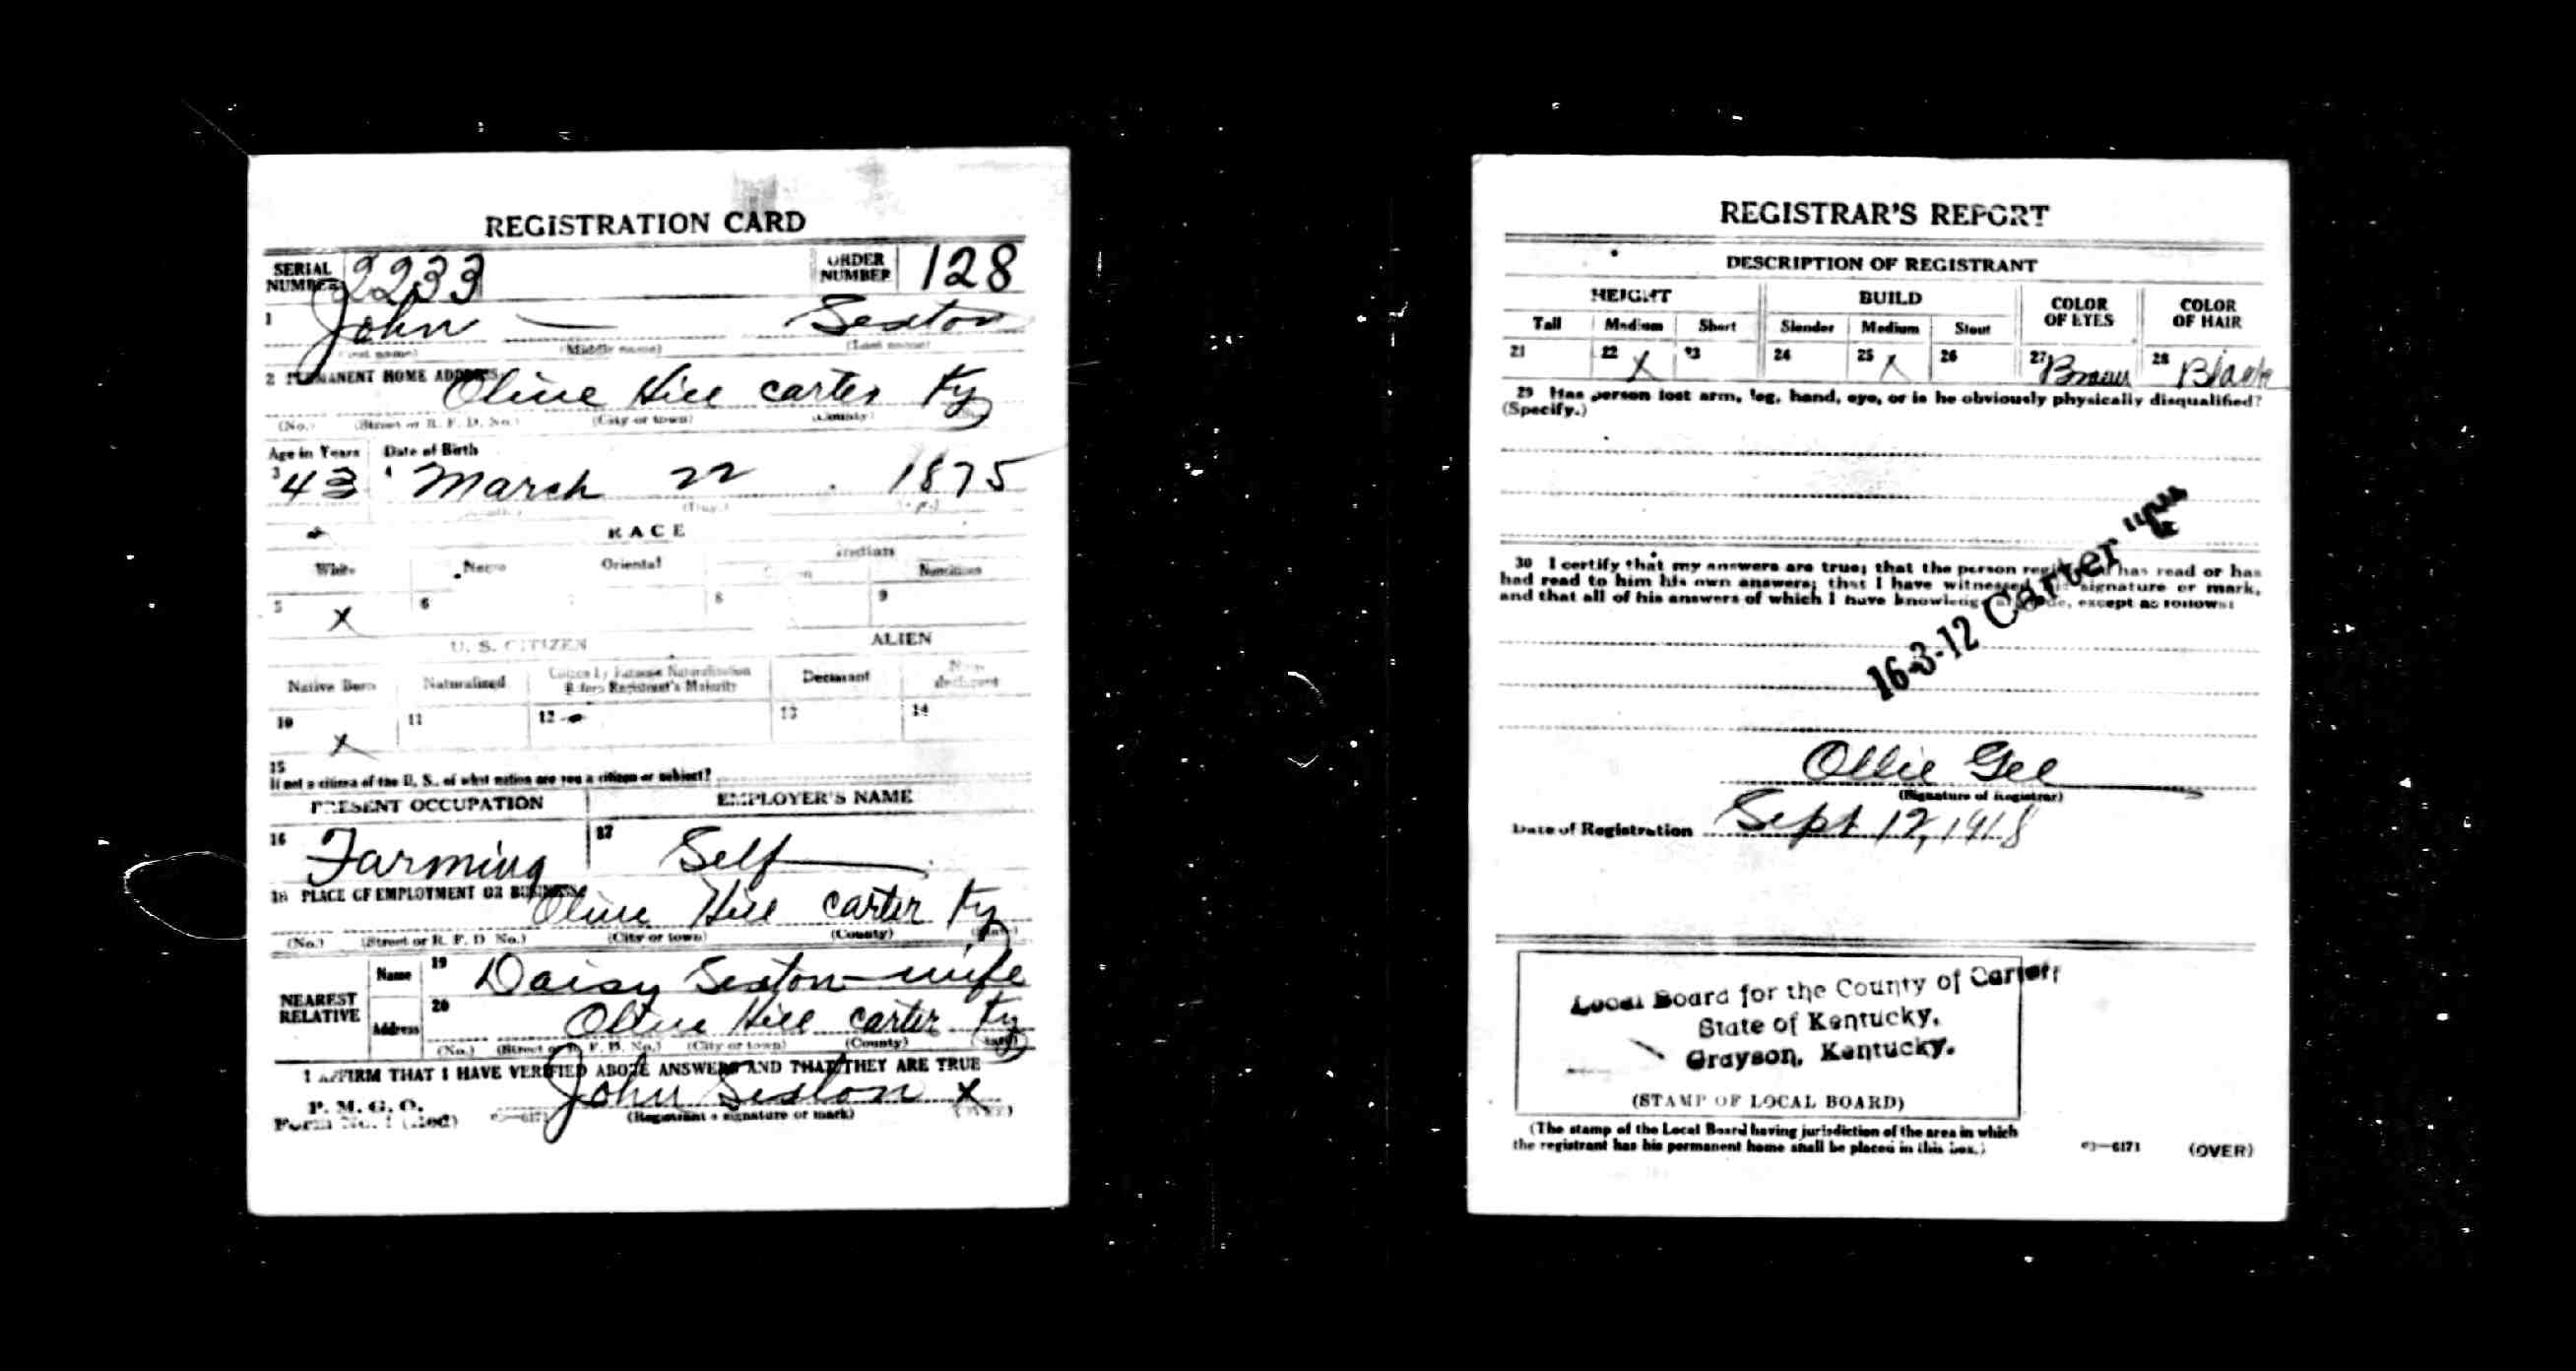 REGISTRATION CARD
SERIAL NUMBER 2233 ORDER NUMBER 128
1 John — Sexton
(First name) (Middle name) (Last name)
2 PERMANENT HOME ADDRESS
Olive Hill carter Ky
(No.) (Street or R. F. D. No.) (City or town) (County)
Age in Years Date of Birth
3 43 4 March 22 1875
(Day.)
RACE
White Negro Oriental Indian
Noncitizen
5 X 6 8 9
U. S. CITIZEN ALIEN
Native Born Naturalized Citizen by Father's Naturalization Before Registrant's Majority Declarant Non-declarant
10 X 11 12 13 14
15
If not a citizen of the U. S., of what nation are you a citizen or subject?
PRESENT OCCUPATION EMPLOYER'S NAME
16 Farming 17 Self
18 PLACE OF EMPLOYMENT OR BUSINESS
Olive Hill carter Ky
(No.) (Street or R. F. D No.) (City or town) (County) (State)
NEAREST RELATIVE
Name 19 Daisy Sexton wife
Address 20 Olive Hill carter Ky
(No.) (Street or R. F. D. No.) (City or town) (County) (State)
I AFFIRM THAT I HAVE VERIFIED ABOVE ANSWERS AND THAT THEY ARE TRUE
P. M. G. O.
Form No. 1 (Red) John Sexton X
(Registrant's signature or mark)
REGISTRAR'S REPORT
DESCRIPTION OF REGISTRANT
HEIGHT BUILD COLOR OF EYES COLOR OF HAIR
Tall Medium Short Slender Medium Stout
21 22 X 23 24 25 X 26 27 Brown 28 Black
29 Has person lost arm, leg, hand, eye, or is he obviously physically disqualified?
(Specify.)
30 I certify that my answers are true; that the person registered has read or has
had read to him his own answers; that I have witnessed his signature or mark,
and that all of his answers of which I have knowledge are true, except as follows:
16-3-12 Carter "A"
Ollie Gee
(Signature of Registrar)
Date of Registration Sept 12, 1918
Local Board for the County of Carter,
State of Kentucky,
Grayson, Kentucky.
(STAMP OF LOCAL BOARD)
(The stamp of the Local Board having jurisdiction of the area in which
the registrant has his permanent home shall be placed in this box.)
03—6171 (OVER)